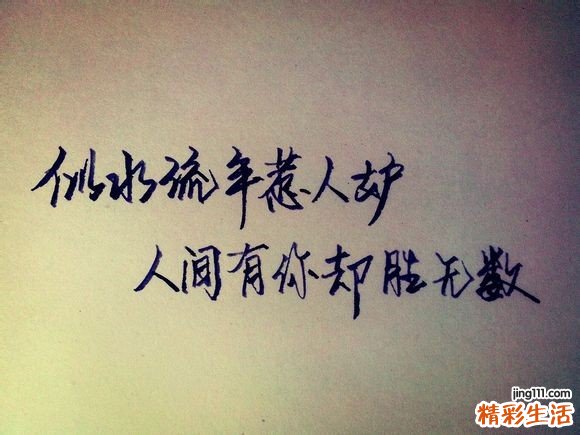 似水流年惹人妒
人间有你却胜无数
jing111.com
精彩生活